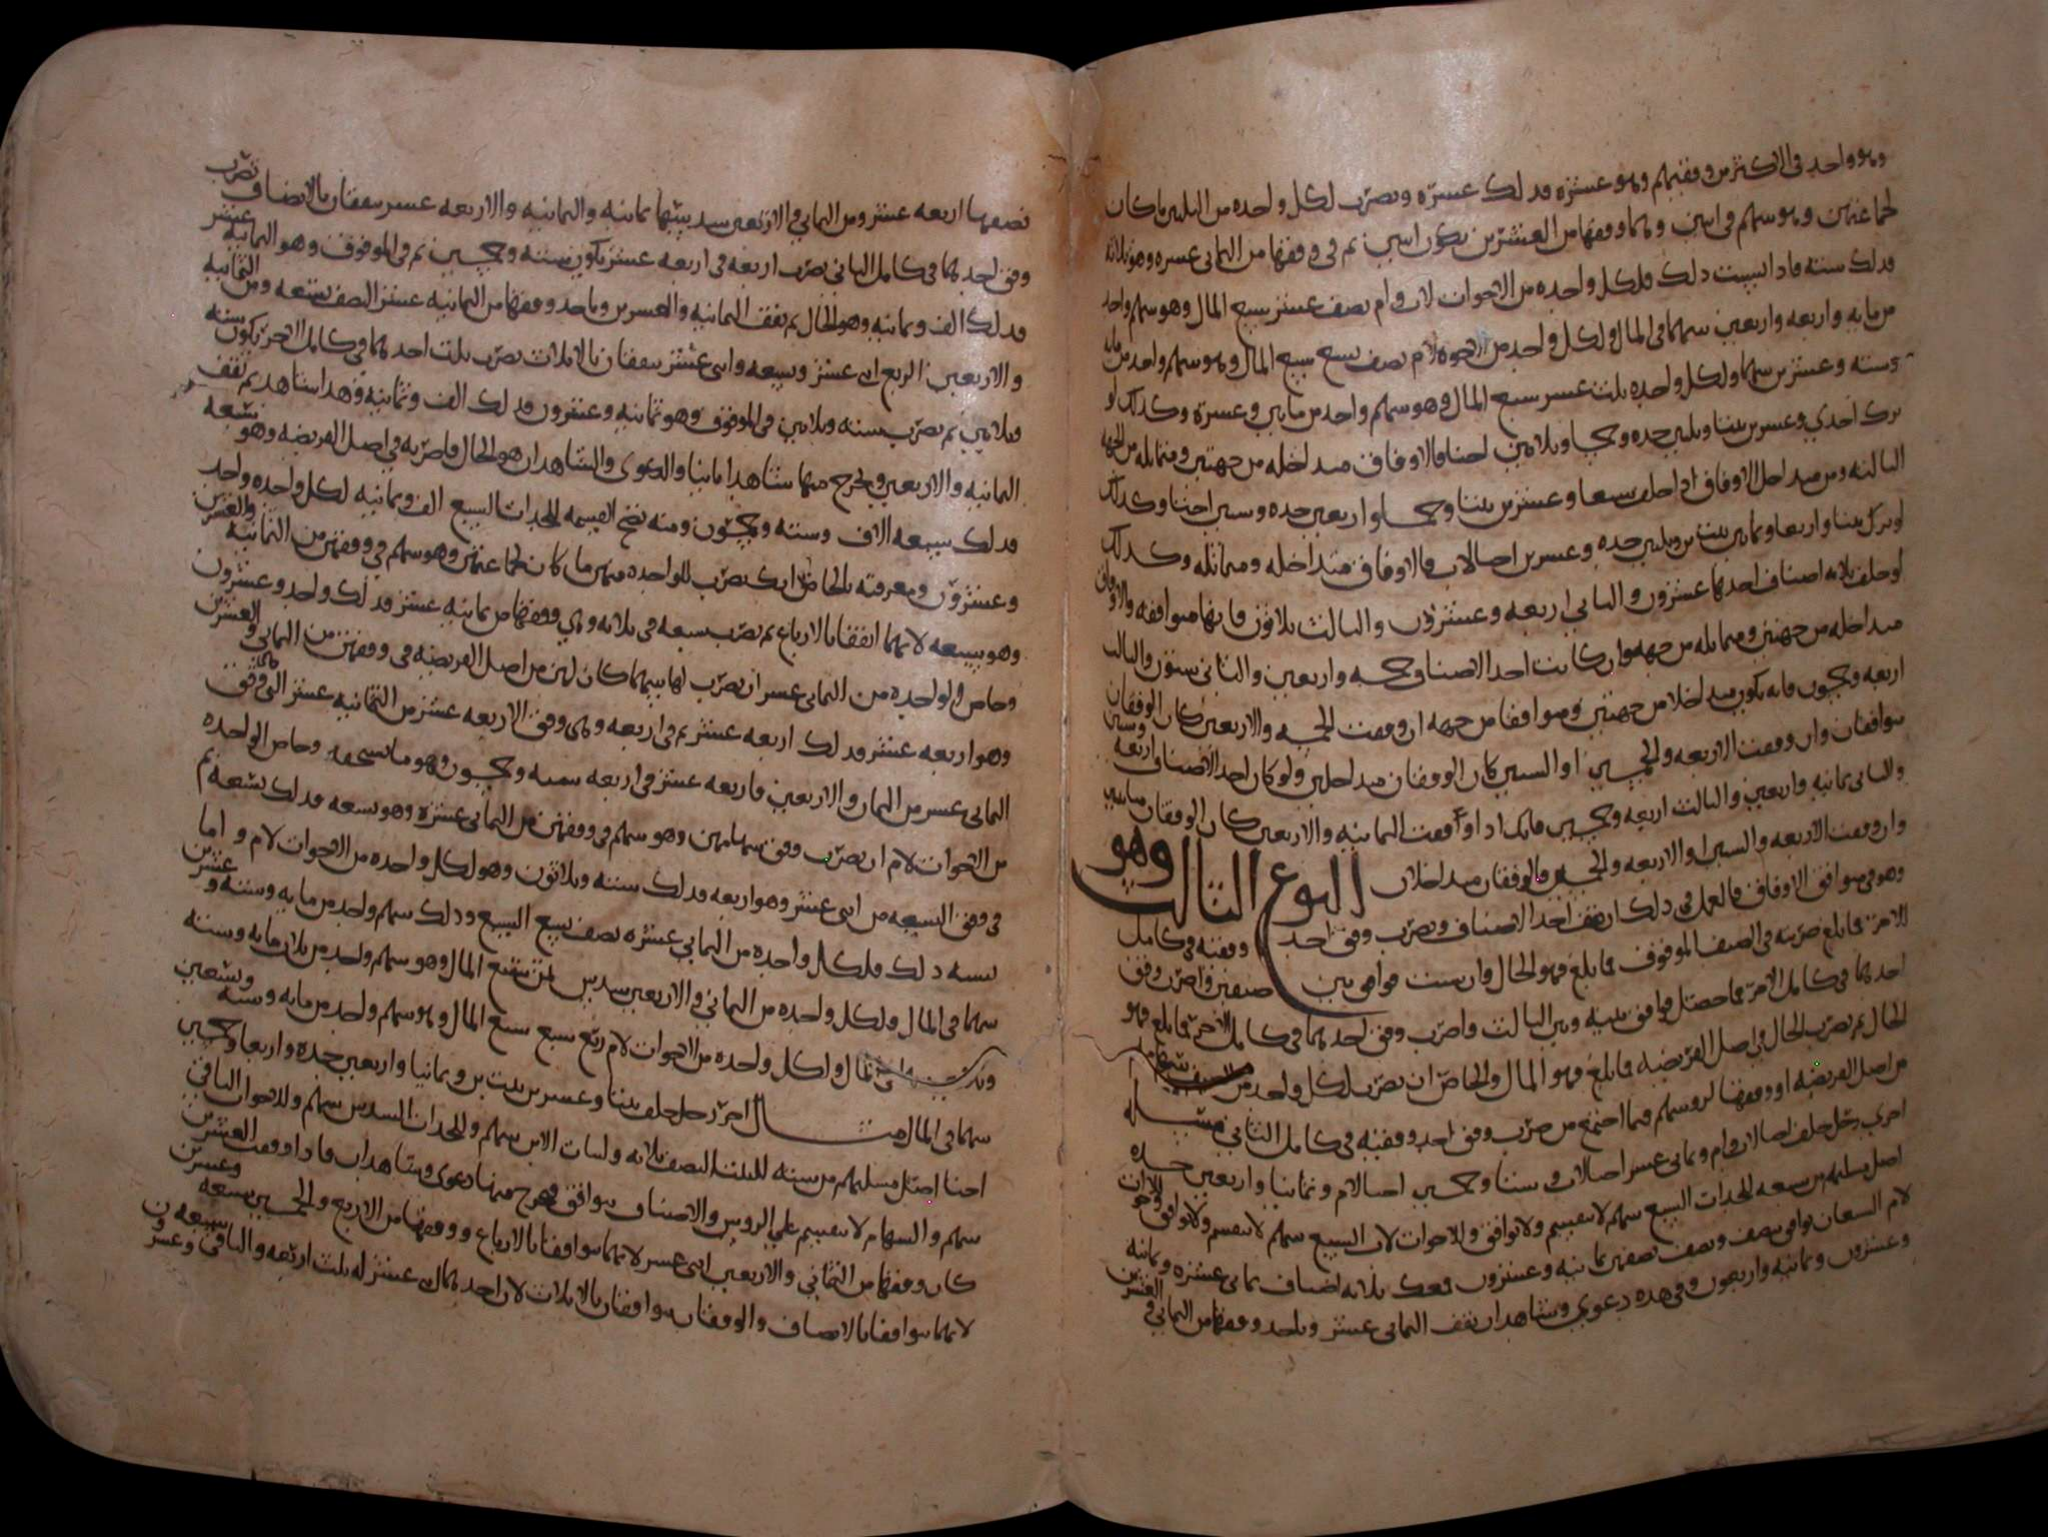 وهو واحد في الاكثر من وفقيهم وهو عشره فذلك عشره ويضرب لكل واحده من البنات ما كان
لجماعتهن وهو سهم في اثنين وهما وفقها من العشرين يكون اثنين ثم في وفقها من الثماني عشره وهو ثلاثه
فذلك سته فاذا نسبت ذلك فلكل واحده من الاخوات لاب وام نصف عشر سبع المال وهو سهم واحد
من مايه واربعه واربعين سهما في المال ولكل واحد من الاخوه لام نصف تسع سبع المال وهو سهم واحد من مايه
وسته وعشرين سهما ولكل واحده ثلث عشر سبع المال وهو سهم واحد من مايتين وعشرة وكذلك لو
ترك احدى وعشرين بنتا وثلثين جده وخمسا وثلاثين اختا فالاوفاق متداخله من جهتين ومتماثله من الجهه
الثالثه ومن متداخل الاوفاق اذا خلف سبعا وعشرين بنتا وخمسا واربعين جده وستين اختا وكذلك
لو ترك بنتا واربعا وثمانين بنت ابن وثلثين جده وعشرين اختا لاب فالاوفاق متداخله ومتماثله وكذلك
لو خلف ثلاثه اصناف احدها عشرون والثاني اربعه وعشرون والثالث ثلاثون فانها متوافقه والاوفاق
متداخله من جهتين ومتماثله من جهه وان كانت احد الاصناف خمسه واربعين والثاني ستون والثالث
اربعه وخمسون فانه يكون متداخلا من جهتين ومتوافقا من جهه ان وقفت الخمسه والاربعين كان الوفقان
متوافقان وان وقفت الاربعه والخمسين او الستين كان الوفقان متداخلين ولو كان احد الاصناف اربعه وستين
والثاني ثمانيه واربعين والثالث اربعه وخمسين فانك اذا اوقفت الثمانيه والاربعين كان الوفقان متباينين
وان وقفت الاربعه والستين او الاربعه والخمسين فالوفقان متداخلان النوع الثالث وهو
وهو في متوافق الاوفاق فالعمل في ذلك ان تقف احد الاصناف وتضرب وفق احد وفقيه في كامل
الاخر فما بلغ ضربته في الصنف الموقوف فما بلغ فهو الحال وان شيت فوافق بين صنفين واضرب وفق
احدهما في كامل الاخر فما حصل فوافق بينه وبين الثالث واضرب وفق احدهما في كامل الاخر فما بلغ فهو
الحال ثم تضرب الحال في اصل الفريضه فما بلغ فهو المال والحاضر ان تضرب لكل واحد من
من اصل الفريضه او وفقها لروسهم فيما اجتمع من ضرب وفق احد وفقيه في كامل الثاني مسله
اخرى رجل خلف اختا لاب وام وثماني عشر اختا لاب وستا وخمسين اختا لام وثمانيا واربعين جده
اصل مسلتهم من سبعه للجدات السبع سهم لا ينقسم ولا يوافق وللاخوات لاب السبع سهم لا ينقسم ولا يوافق وللاخوات
لام السبعان توافق بنصف ونصف نصفهن ثمانيه وعشرون فمعك ثلاثه اصناف ثماني عشره وثمانيه
وعشرون وثمانيه واربعون وفي هذه دعوى وشاهدان تقف الثماني عشر وتاخذ وفقها من الثماني والعشرين
نصفها اربعه عشر ومن الثماني والاربعين سدسها ثمانيه والثمانيه والاربعه عشر يتفقان بالانصاف تضرب
وفق احدهما في كامل الثاني تضرب اربعه في اربعه عشر يكون سته وخمسين ثم في الموقوف وهو الثمانيه عشر
فذلك الف وثمانيه وهو الحال ثم تقف الثمانيه والعشرين وتاخذ وفقها من الثمانيه عشر النصف تسعه ومن الثمانيه
والاربعين الربع اثنى عشر وتسعه واثنى عشر يتفقان بالاثلاث تضرب ثلث احدهما في كامل الاخر يكون سته
وثلاثين ثم تضرب سته وثلاثين في الموقوف وهو ثمانيه وعشرون فذلك الف وثمانيه فهذا شاهد ثم تقف
الثمانيه والاربعين ويخرج منها شاهدا ثانيا والدعوى والشاهدان هو الحال فاضربه في اصل الفريضه وهو سبعه
فذلك سبعه الاف وسته وخمسون ومنه تصح القسمه للجدات السبع الف وثمانيه لكل واحده واحد
وعشرون ومعرفته بالحاضر انك تضرب للواحده منهن ما كان لجماعتهن وهو سهم في وفقهن من الثمانيه والعشرين
وهو سبعه لانهما اتفقا بالارباع ثم تضرب سبعه في ثلاثه وهي وفقها من ثمانيه عشر فذلك واحد وعشرون
وحاضر الواحده من الثماني عشر ان تضرب لها سهما كان لهن من اصل الفريضه في وفقهن من الثماني والعشرين
وهو اربعه عشر فذلك اربعه عشر ثم في اربعه وهي وفق الاربعه عشر من الثمانيه عشر التي وفق
الثماني عشر من الثمان والاربعين فاربعه عشر في اربعه سته وخمسون وهو ما تستحقه وحاضر الواحده
من الاخوات لام ان تضرب وفق سهامهن وهو سهم في وفقهن من الثماني عشره وهو تسعه فذلك تسعه ثم
في وفق التسعه من اثنى عشر وهو اربعه فذلك سته وثلاثون وهو لكل واحده من الاخوات لام واما
نسبه ذلك فلكل واحده من الثماني عشره نصف تسع السبع وذلك سهم واحد من مايه وسته وعشرين
سهما في المال ولكل واحده من الثماني والاربعين سدس ثمن سبع المال وهو سهم واحد من ثلاث مايه وسته
وثلثين سهما في المال ولكل واحده من الاخوات لام ربع سبع سبع المال وهو سهم واحد من مايه وسته وتسعين
سهما في المال مثال اخر رجل خلف بنتا وعشرين بنت ابن وثمانيا واربعين جده واربعا وخمسين
اختا اصل مسلتهم من سته للبنت النصف ثلاثه ولبنات الابن سهم وللجدات السدس سهم وللاخوات الباقي
سهم والسهام لا تنقسم على الروس والاصناف متوافق فتخرج منها دعوى وشاهدان فاذا وقفت العشرين
كان وفقها من الثماني والاربعين اثنى عشر لانهما متوافقا بالارباع ووفقها من الاربع والخمسين سبعه وعشرين
لانهما متوافقا بالانصاف والوفقان متوافقان بالاثلاث لان احدهما اثنى عشر له ثلث اربعه والثاني سبعه وعشرون